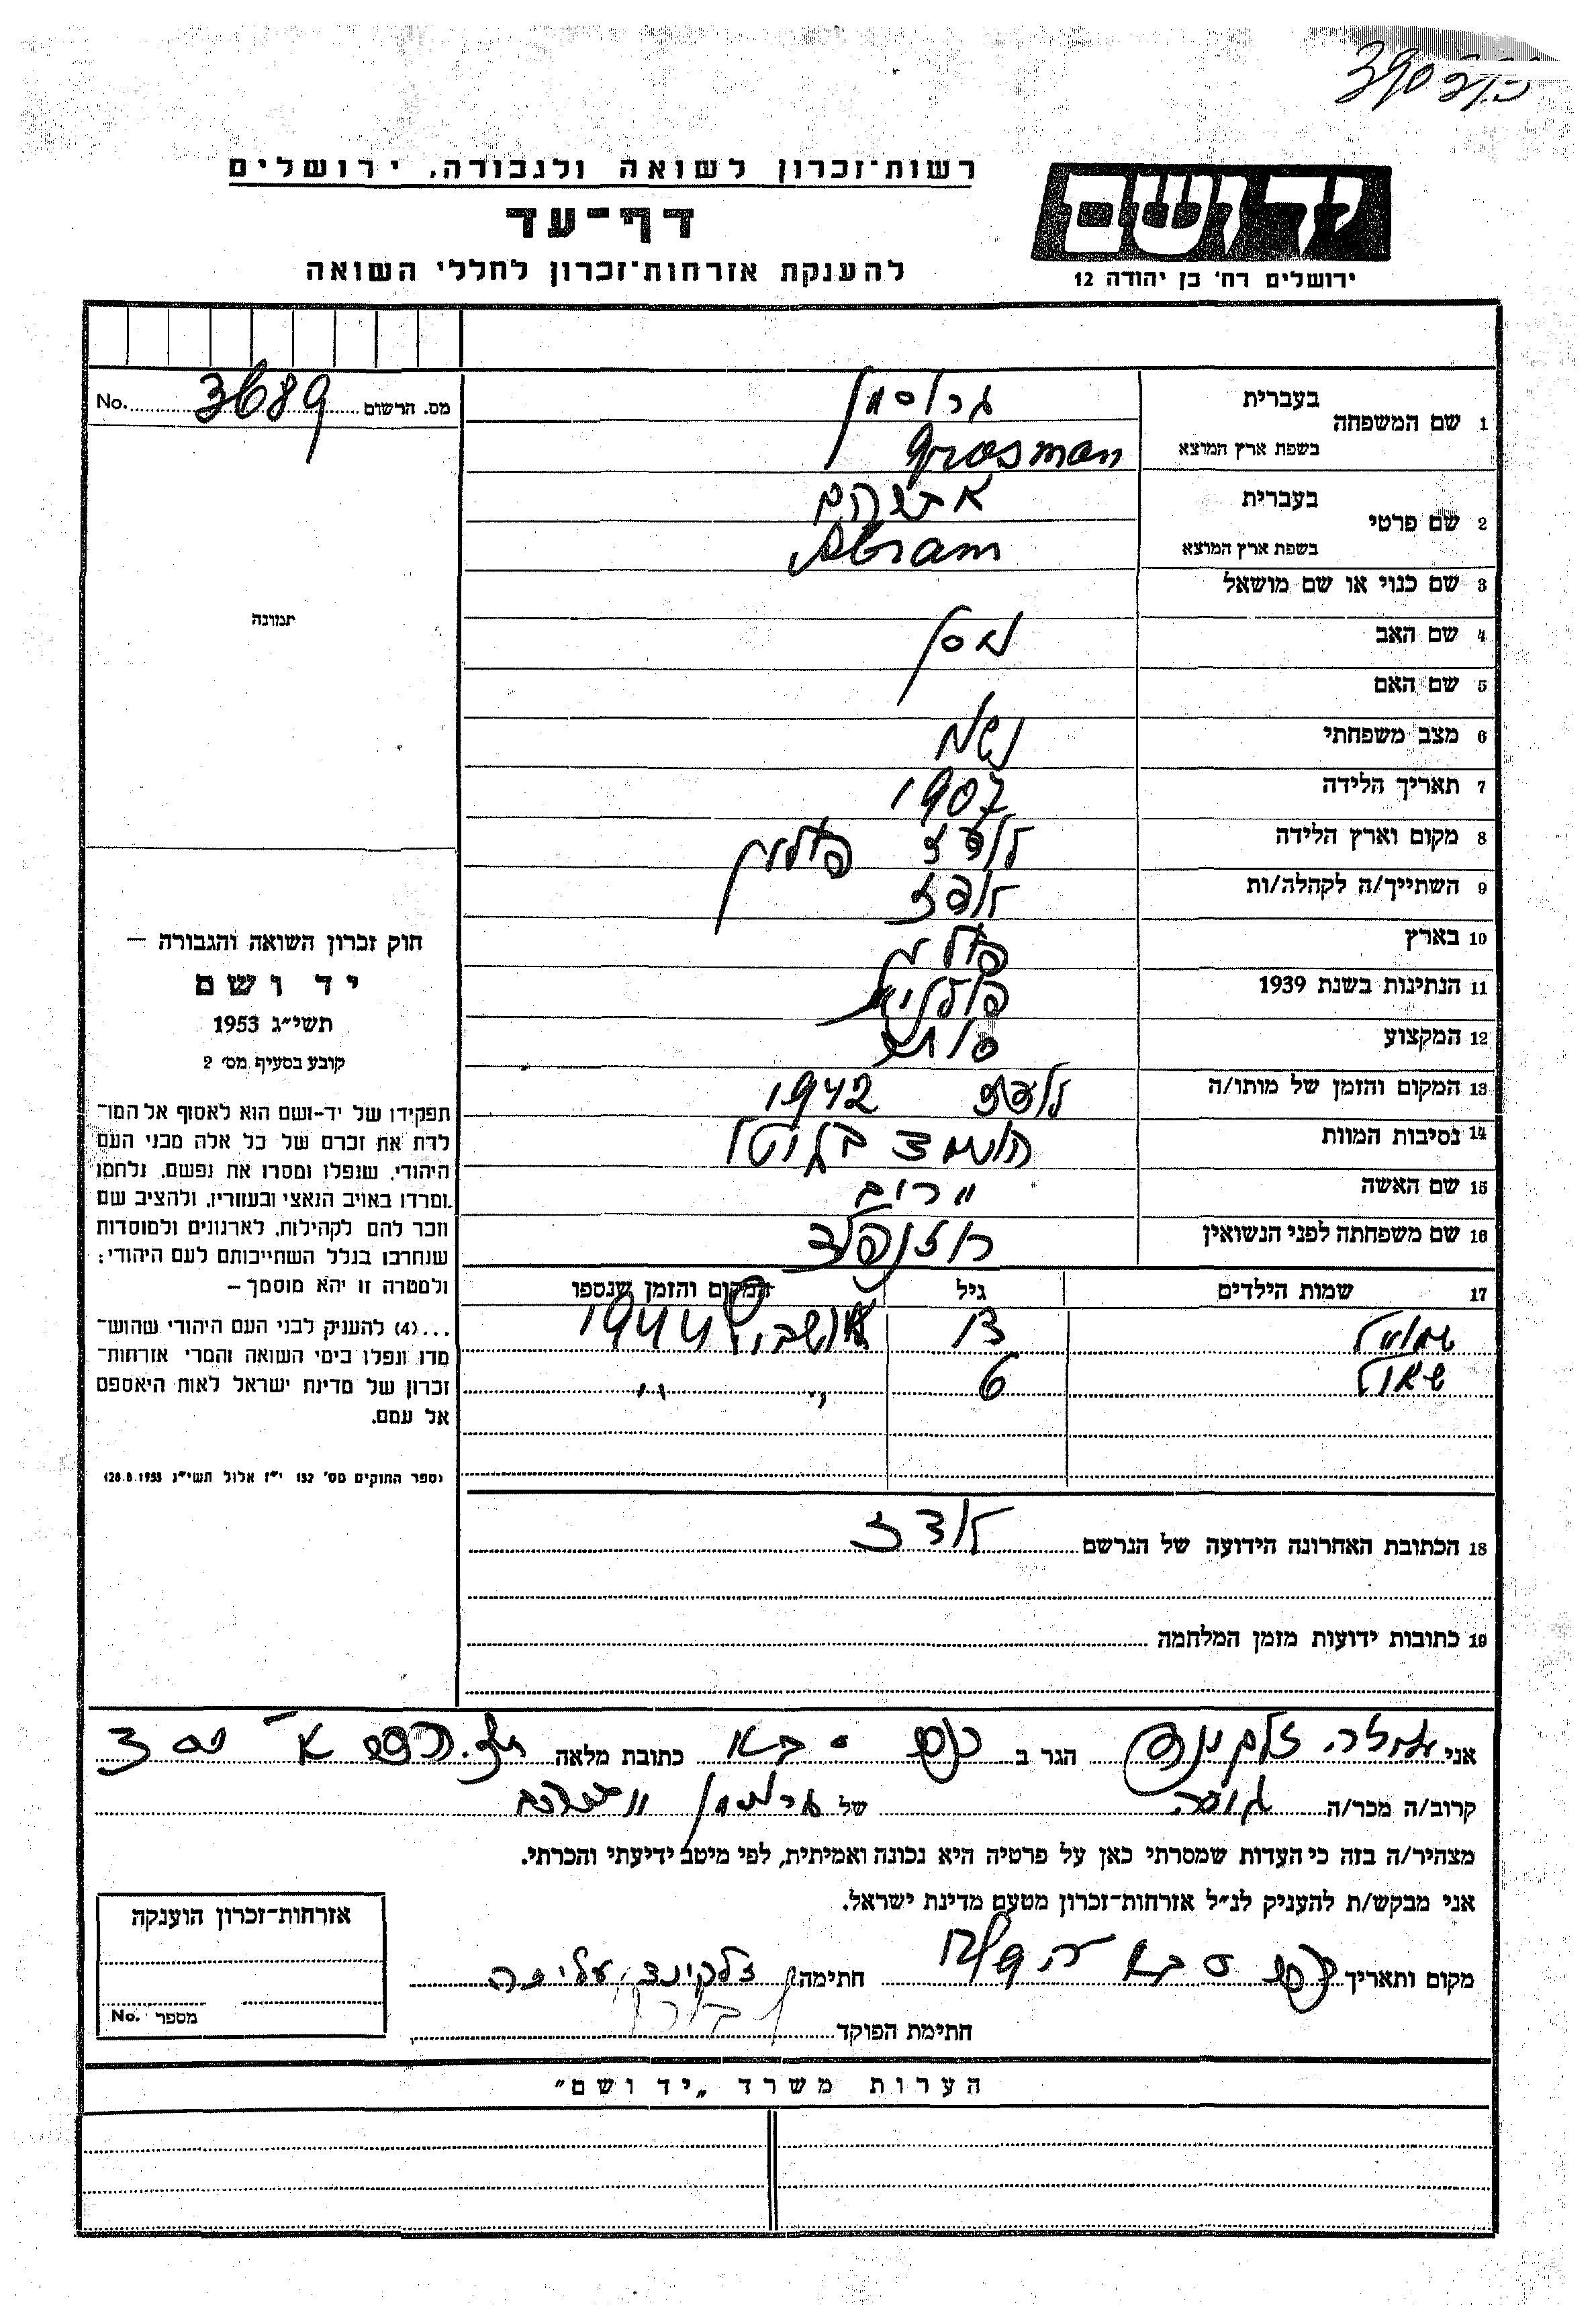 רשות־זכרון לשואה ולגבורה, ירושלים
דף־עד
להענקת אזרחות־זכרון לחללי השואה
יד ושם
ירושלים רח' בן יהודה 12
מס. הרשום 3689 No.
1 שם המשפחה
בעברית גרוסמן
בשפת ארץ המוצא Grosman
2 שם פרטי
בעברית אברהם
בשפת ארץ המוצא Abram
3 שם כנוי או שם מושאל
4 שם האב
5 שם האם
6 מצב משפחתי נשוי
7 תאריך הלידה 1907
8 מקום וארץ הלידה לודז פולין
9 השתייך/ה לקהלה/ות לודז
10 בארץ פולין
11 הנתינות בשנת 1939 פולנית
12 המקצוע סוחר
13 המקום והזמן של מותו/ה לודז 1942
14 נסיבות המוות הושמד בגיטו
15 שם האשה
16 שם משפחתה לפני הנשואין רוזנפלד
17 שמות הילדים גיל המקום והזמן שנספו
שמואל 13 אושביץ 1944
שאול 6 " "
18 הכתובת האחרונה הידועה של הנרשם לודז
19 כתובות ידועות מזמן המלחמה
תמונה
חוק זכרון השואה והגבורה —
יד ושם
תשי״ג 1953
קובע בסעיף מס׳ 2
תפקידו של יד-ושם הוא לאסוף אל המו־
לדת את זכרם של כל אלה מבני העם
היהודי, שנפלו ומסרו את נפשם, נלחמו
ומרדו באויב הנאצי ובעוזריו, ולהציב שם
וזכר להם לקהילות, לארגונים ולמוסדות
שנחרבו בגלל השתייכותם לעם היהודי;
ולמטרה זו יהא מוסמך —
...(4) להעניק לבני העם היהודי שהוש־
מדו ונפלו בימי השואה והמרי אזרחות־
זכרון של מדינת ישראל לאות היאספם
אל עמם.
(ספר החוקים מס׳ 132 י״ז אלול תשי״ג 28.8.1953)
אני עליזה זלקינד הגר ב כפר סבא כתובת מלאה
קרוב/ה מכר/ה גיסה של גרוסמן אברהם
מצהיר/ה בזה כי העדות שמסרתי כאן על פרטיה היא נכונה ואמיתית, לפי מיטב ידיעתי והכרתי.
אני מבקש/ת להעניק לנ״ל אזרחות־זכרון מטעם מדינת ישראל.
מקום ותאריך כפר סבא חתימה זלקינד עליזה
חתימת הפוקד
אזרחות־זכרון הוענקה
מספר No.
הערות משרד „יד ושם״